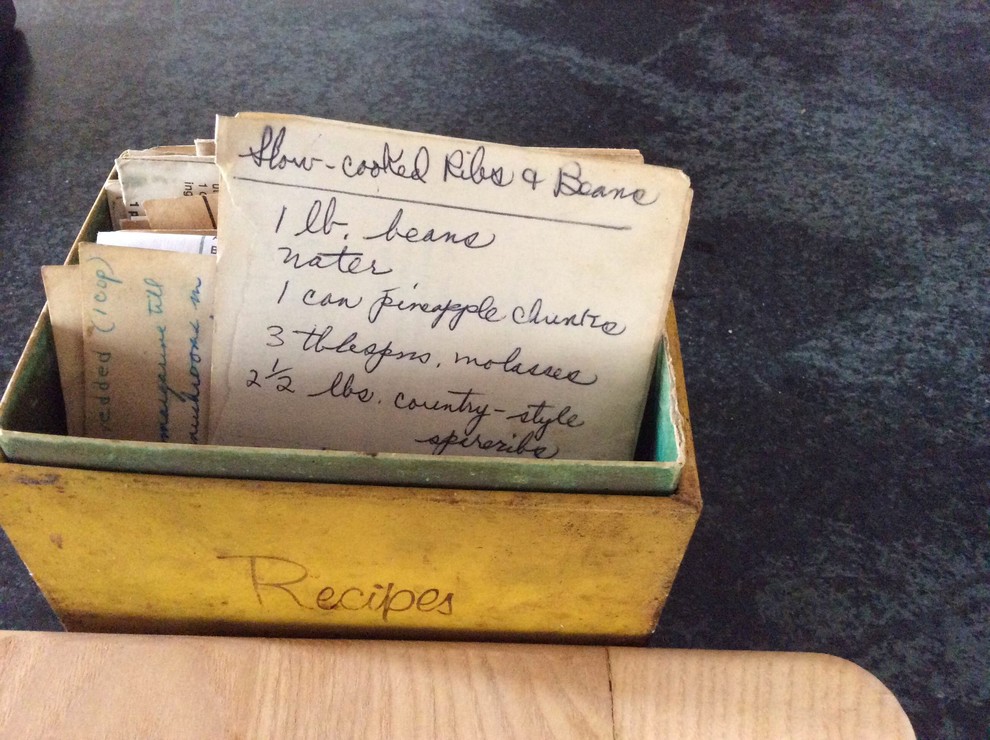 Slow-cooked Ribs & Beans
1 lb. beans
Water
1 can pineapple chunks
3 tblespns. molasses
2 1/2 lbs. country-style
spareribs
redded (1 cup)
margarine till
mushrooms. m
ing
1 c
1 p
Recipes